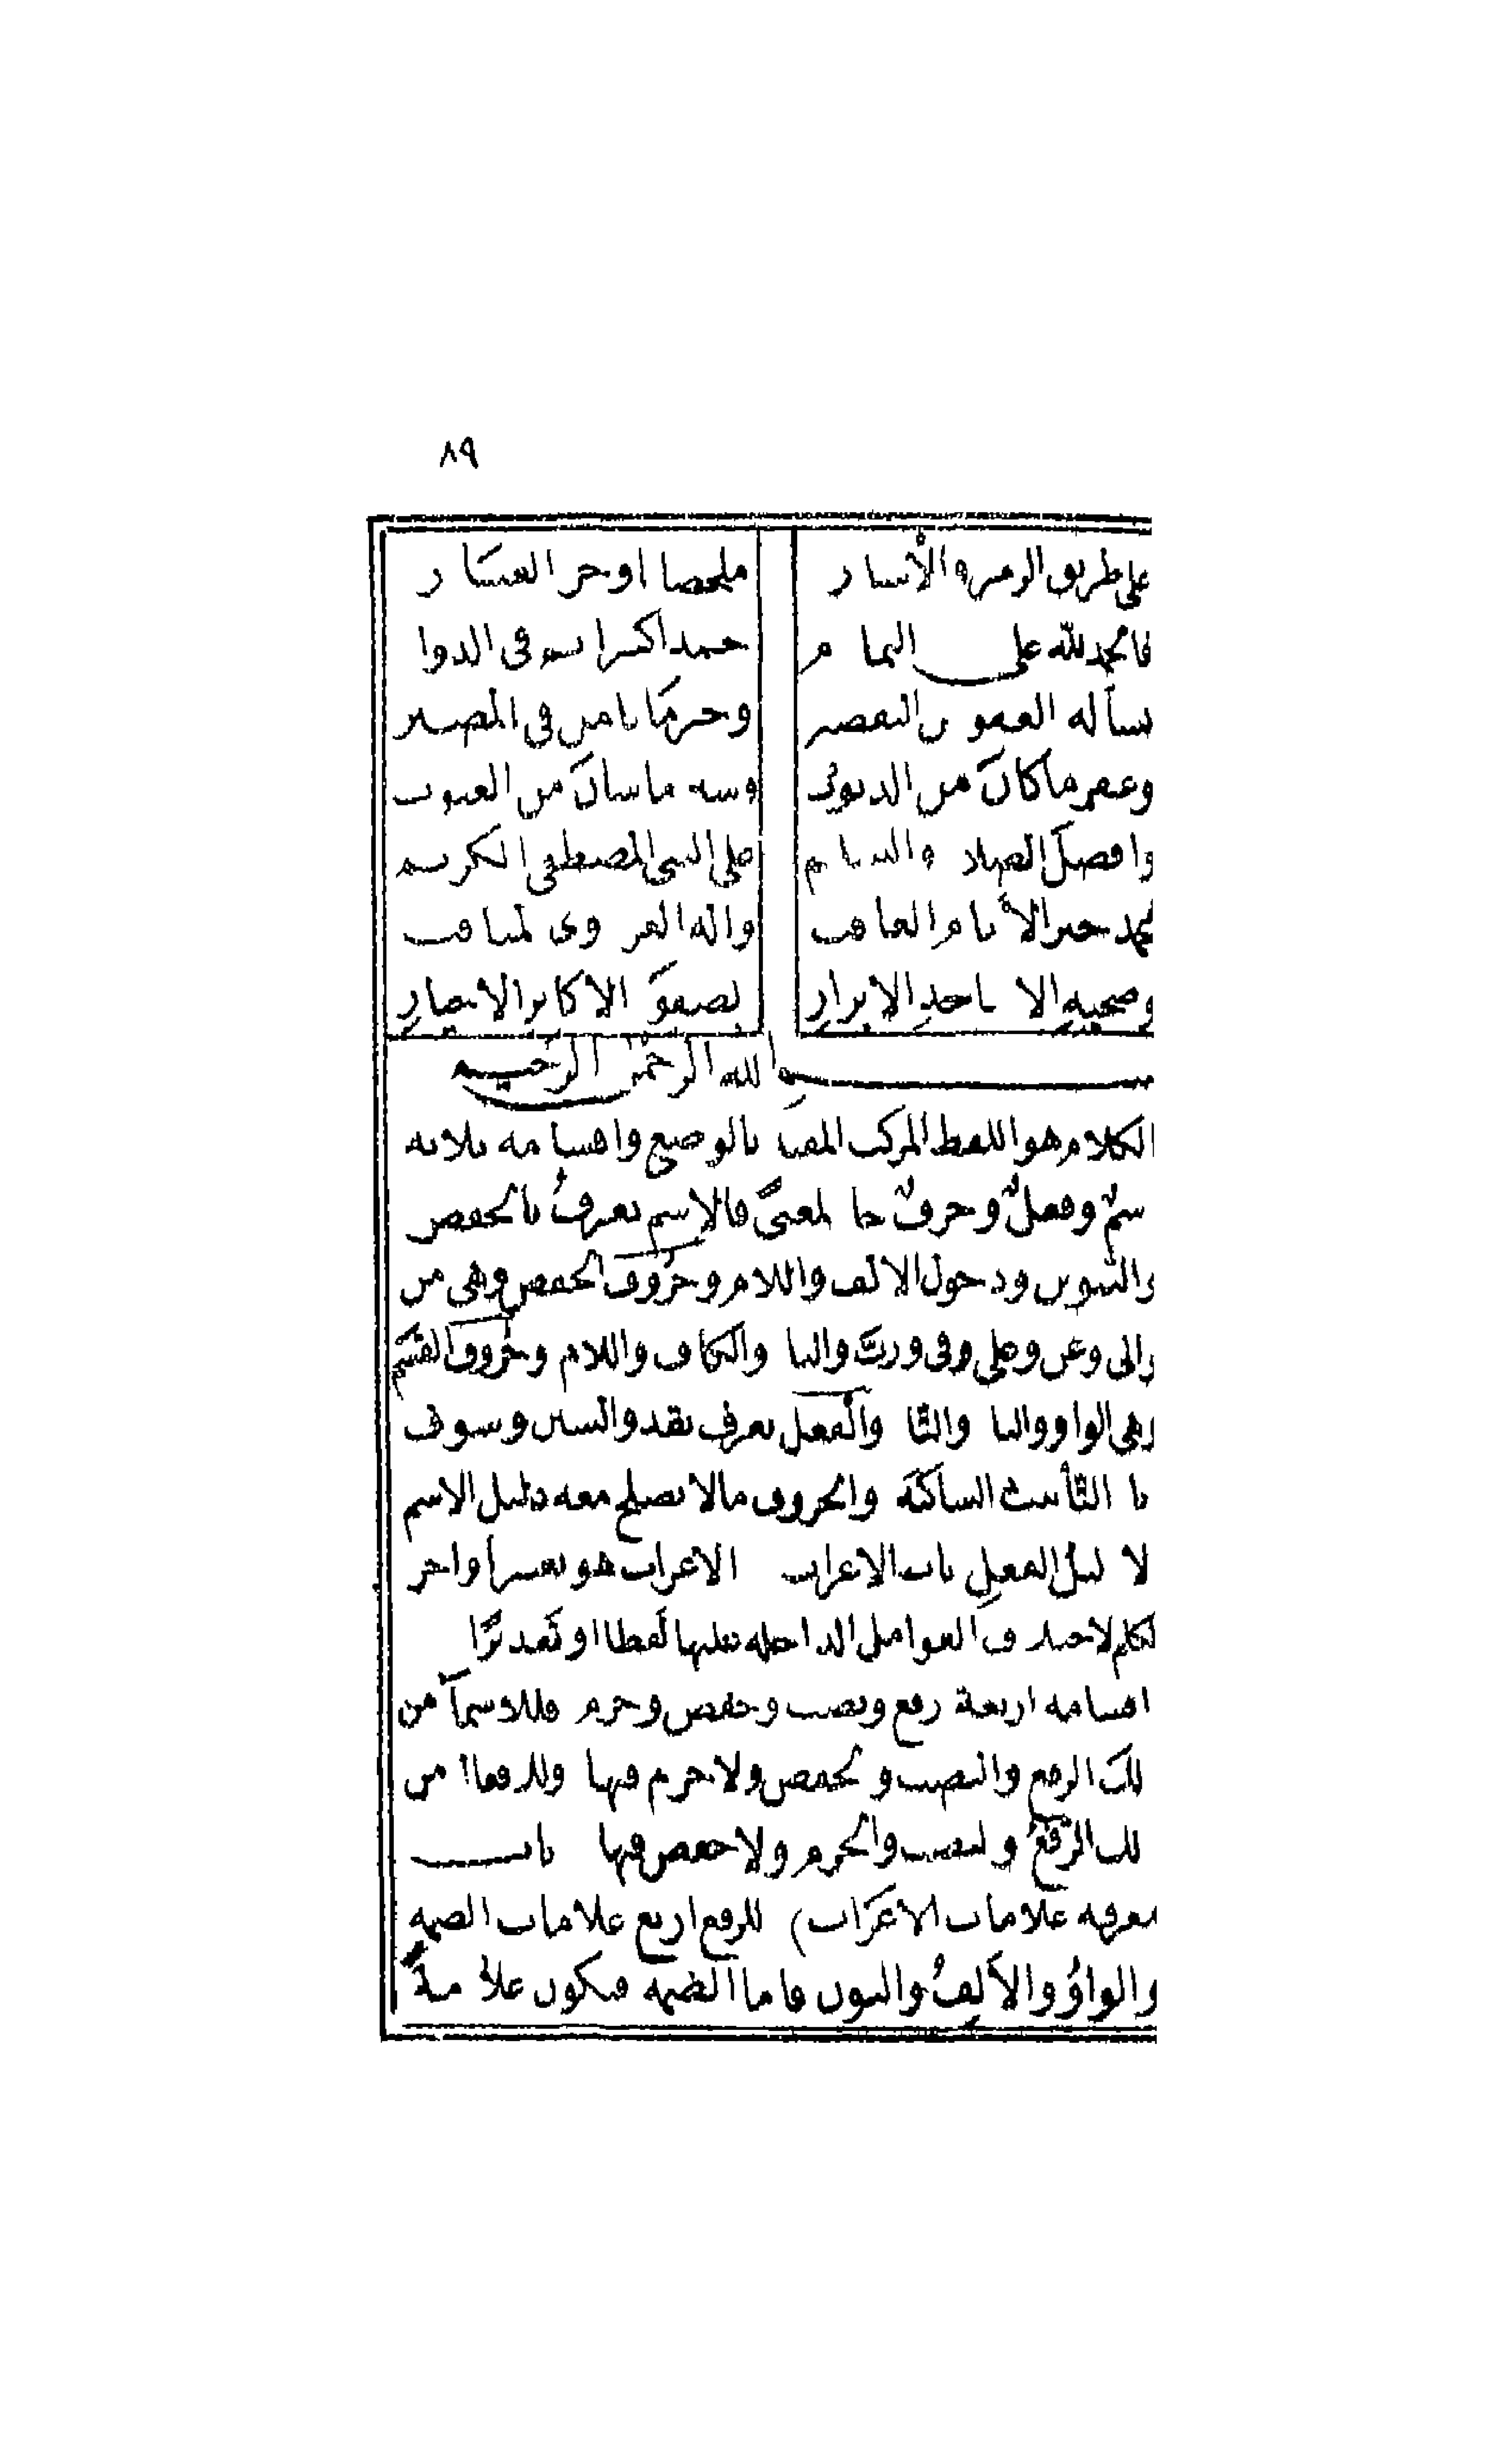 ٨٩
على طريق الرمز والاشار ملخصا اوجز العبار
فالحمد لله على التمام حمدا كثيرا يتم في الدوام
نسأله العفو عن التقصير وخير ما نامل في المصير
وغفر ما كان من الذنوب وستر ما شان من العيوب
وافضل الصلاة والسلام على النبي المصطفى الكريم
محمد خير الأنام العاقب واله الغر ذوي المناقب
وصحبه الاماجد الابرار الصفوة الاكابر الاخيار
بسم الله الرحمن الرحيم
الكلام هو اللفظ المركب المفيد بالوضع واقسامه ثلاثه
اسمٌ وفعلٌ وحرفٌ جا لمعنىً فالاسم يعرفُ بالخفض
والتنوين ودخول الالف واللام وحُروف الخفض وهي من
والى وعن وعلى وفي وربَّ والبا والكاف واللام وحُروف القَسَم
وهي الواو والبا والتّا والفعل يعرف بقد والسين وسوف
تا التّأنيث الساكنة والحروف مالا يصلح معه دليل الاسم
لا ليل الفعلِ باب الاعراب الاعراب هو تغيير اواخر
لكلم لاختلاف العوامل الداخله عليها لَفظا او تَقديرًا
اقسامه اربعة رفع ونصب وخفض وجزم فللاسمآ من
لكَ الرفع والنصب والخفض ولا جزم فيها وللافعال من
لك الرَّفعُ والنصب والجزم ولا خفض فيها باب
معرفه علامات الاعرَاب للرفع اربع علامات الضمه
والواوُ والألِفُ والنون فاما الضمّه فتكون علامةً